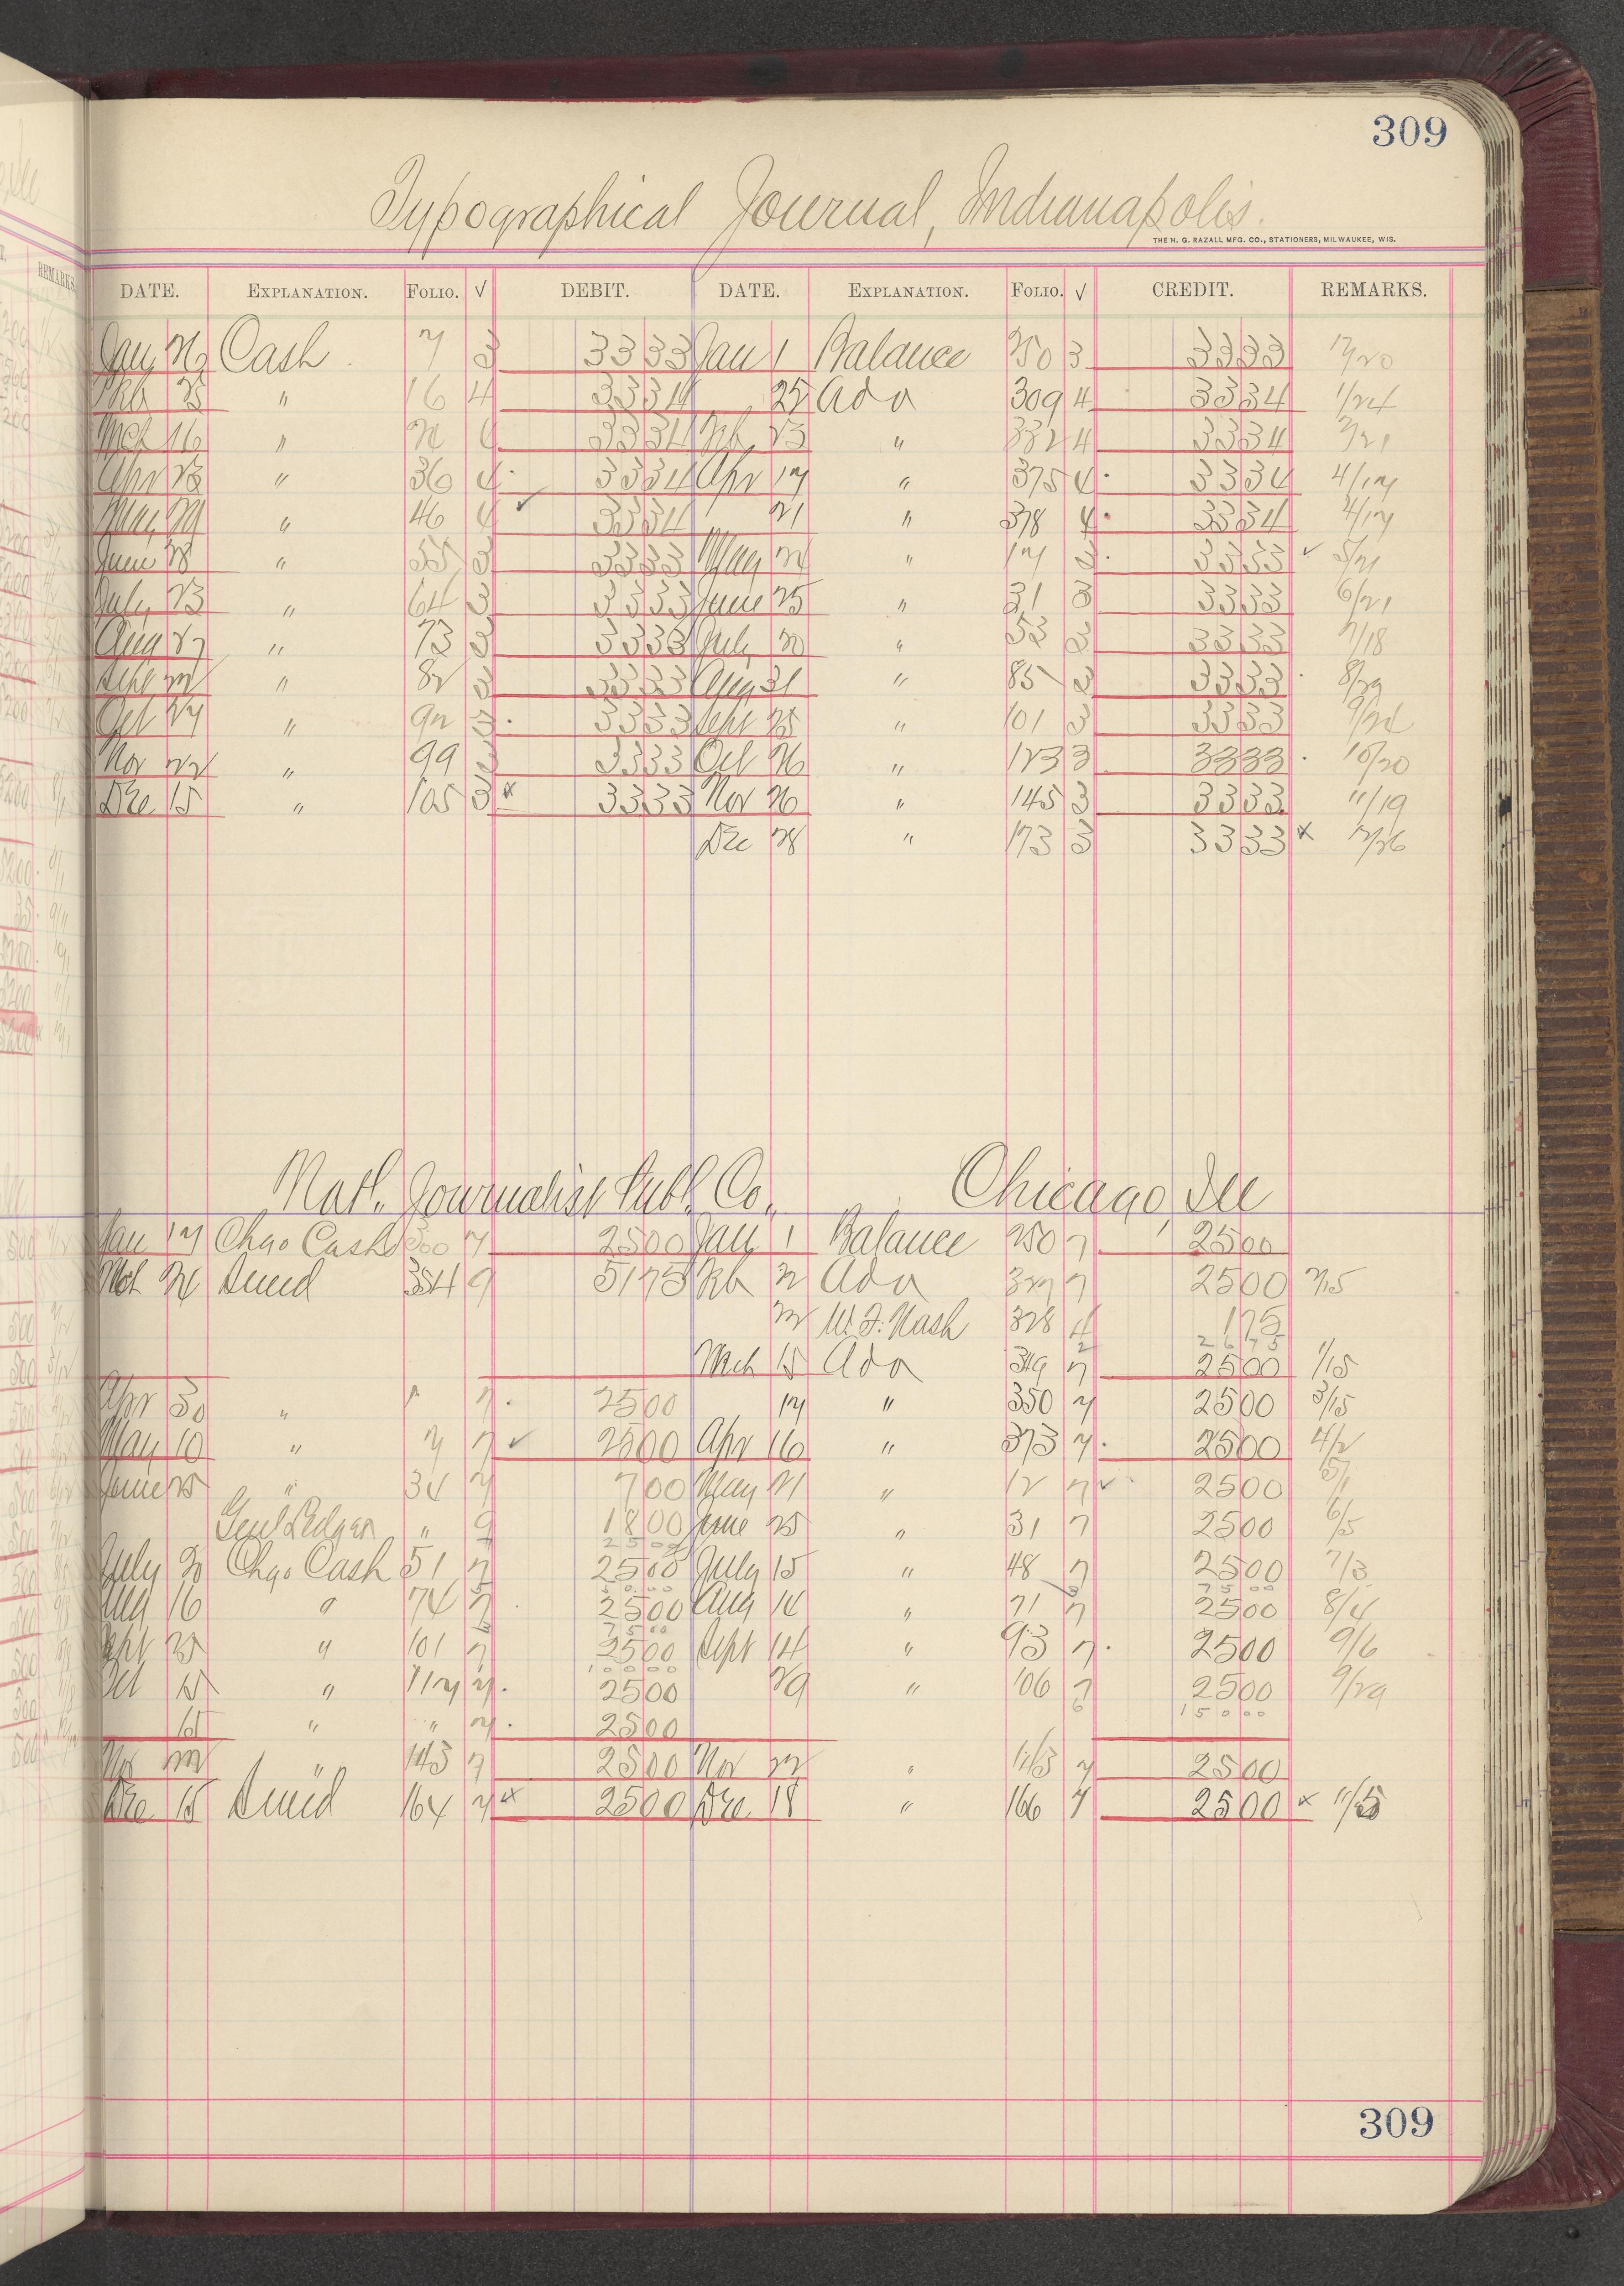 309
Typographical Journal, Indianapolis.
THE H. G. RAZALL MFG. CO., STATIONERS, MILWAUKEE, WIS.
DATE. EXPLANATION. FOLIO. √ DEBIT. DATE. EXPLANATION. FOLIO. √ CREDIT. REMARKS.
Jan Cash 7 3 3333 Jan 1 Balance 250 3 3333 12/20
Feb 25 " 16 4 3334 25 Ada 309 4 3334 1/24
Mch 16 " 4 3334 Feb 23 " 332 4 3334 2/21
Apr 23 " 36 4 3334 Apr 17 " 375 4 3334 4/17
May " 46 4 ✓ 3334 21 " 378 4 3334 4/17
June 28 " 55 3 3333 May " 17 3 3333 ✓ 5/21
July 23 " 64 3 3333 June 25 " 31 3 3333 6/21
Aug 27 " 73 3 3333 July 20 " 52 3 3333 7/18
Sept 22 " 82 3 3333 Aug 31 " 85 3 3333 8/29
Oct 27 " 92 3 3333 Sept 25 " 101 3 3333 9/24
Nov 22 " 99 3 3333 Oct 26 " 123 3 3333 10/20
Dec 15 " 105 3 x 3333 Nov 26 " 145 3 3333 11/19
Dec 28 " 173 3 3333 x 12/26
Natl. Journalist Publ. Co., Chicago, Ill
Jan 17 Chgo Cash 300 7 2500 Jan 1 Balance 250 7 2500
Mch 354 9 5175 Feb 2 Ada 7 2500 2/15
22 W. F. Nash 328 4 175
2675
Mch 15 Ada 349 7 2500 1/15
Apr 30 " 1 7 2500 17 " 350 7 2500 3/15
May 10 " 7 7 ✓ 2500 Apr 16 " 373 7 2500 4/2
June 25 " 34 7 700 May 21 " 12 7 ✓ 2500 5/1
Genl Ledger " 9 1800 June 25 " 31 7 2500 6/5
2500
July 20 Chgo Cash 51 7 2500 July 15 " 48 7 2500 7/3
5000 7500
Aug 16 " 74 7 2500 Aug 14 " 71 7 2500 8/4
7500
Sept 25 " 101 7 2500 Sept 14 " 93 7 2500 9/6
10000
Oct 15 " 117 7 2500 29 " 106 7 2500 9/29
15000
15 " " 7 2500
Nov 22 " 143 7 2500 Nov 22 " 143 7 2500
Dec 15 164 7 x 2500 Dec 18 " 166 7 2500 x 11/25
309